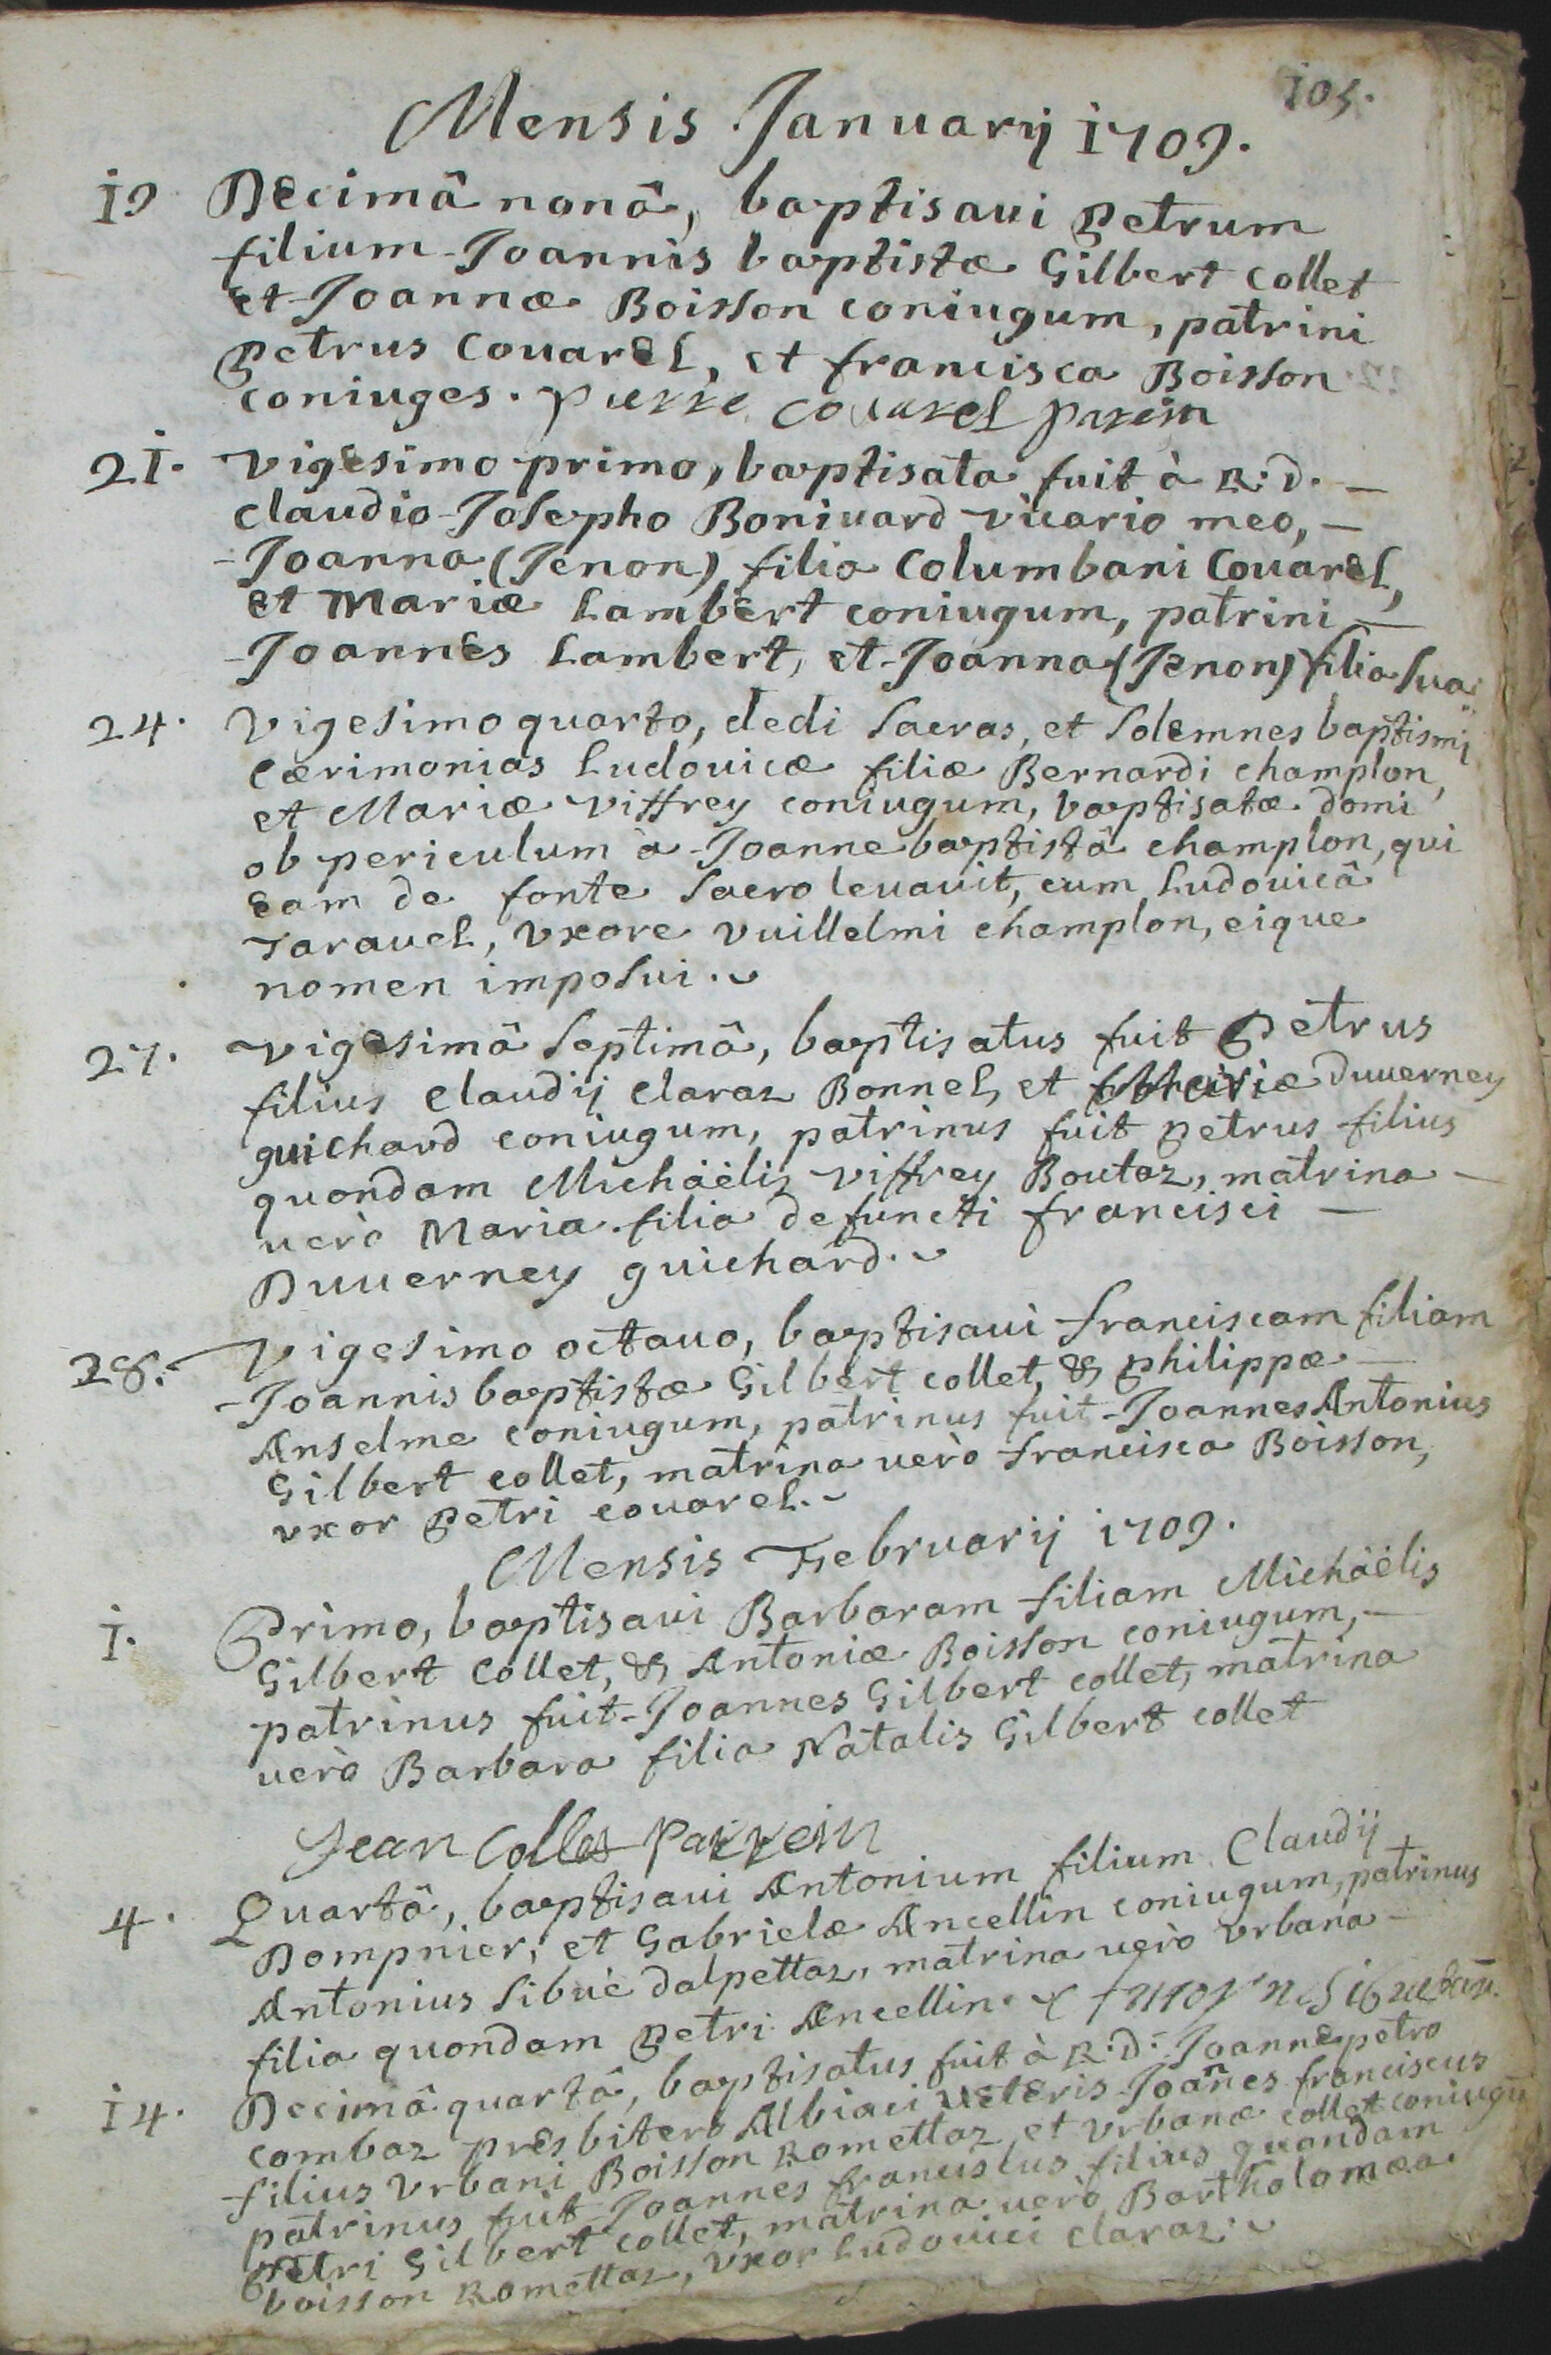 105.
Mensis Januarij 1709.
19 Decimâ nonâ, baptisaui Petrum
filium Joannis baptistæ Gilbert collet
et Joannæ Boisson coniugum, patrini
Petrus Couarel, et francisca Boisson
coniuges. pierre couarel parein
21. vigesimo primo, baptisata fuit à R.D. —
claudio Josepho Boniuard vicario meo, —
Joanna (Jenon) filia Columbani Couarel,
et Mariæ Lambert coniugum, patrini —
Joannes Lambert, et Joanna (Jenon) filia sua.
24. Vigesimo quarto, dedi sacras, et solemnes baptismi
cærimonias Ludouicæ filiæ Bernardi champlon,
et Mariæ viffrey coniugum, baptisatæ domi
ob periculum à Joanne baptistâ champlon, qui
eam de fonte sacro leuauit, cum Ludouicâ
Tarauel, vxore vuillelmi champlon, eique
nomen imposui.
27. vigesimâ septimâ, baptisatus fuit Petrus
filius claudij claraz Bonnel, et Mariæ Duuerney
guichard coniugum, patrinus fuit petrus filius
quondam Michäelis viffrey Boutaz, matrina —
uerò Maria filia defuncti francisci —
Duuerney guichard.
28. Vigesimo octauo, baptisaui franciscam filiam
Joannis baptistæ Gilbert collet, & philippæ —
Anselme coniugum, patrinus fuit Joannes Antonius
Gilbert collet, matrina uerò francisca Boisson,
vxor Petri couarel.
Mensis Februarij 1709.
1. Primo, baptisaui Barbaram filiam Michäelis
Gilbert Collet, & Antoniæ Boisson coniugum, —
patrinus fuit Joannes Gilbert collet, matrina
uerò Barbara filia Natalis Gilbert collet
Jean Collet parrein
4. Quartâ, baptisaui Antonium filium Claudij
Dompnier, et Gabrielæ Ancellin coniugum, patrinus
Antonius Sibuè dalpettaz, matrina uerò vrbana —
filia quondam Petri Ancellin.
14. Decimâ quartâ, baptisatus fuit à R.D. Joanne petro
combaz presbitero Albiaci veteris Joañes franciscus
filius vrbani Boisson Romettaz et vrbanæ collet coniugū
patrinus fuit Joannes franciscus filius quondam
Petri Gilbert collet, matrina uerò Bartholomæa
boisson Romettaz, vxor Ludouici claraz.